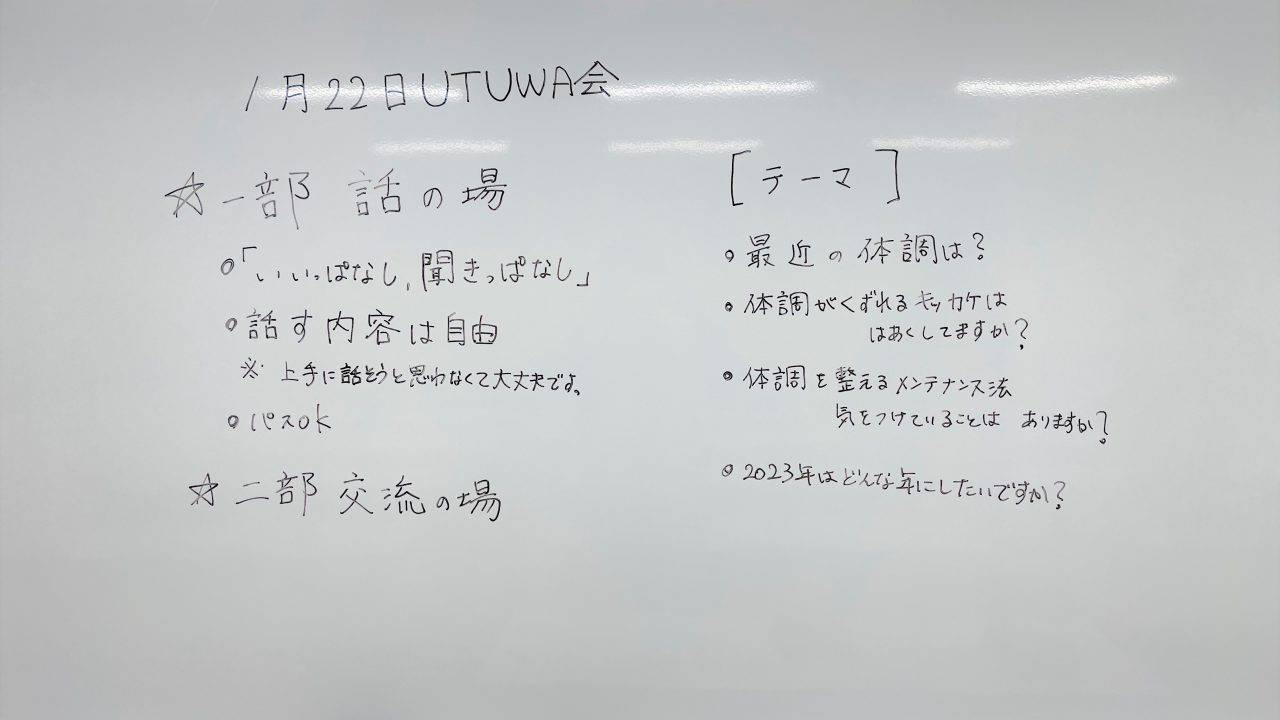 1月22日UTUWA会
☆一部 話の場
○「いいっぱなし,聞きっぱなし」
○話す内容は自由
※ 上手に話そうと思わなくて大丈夫です。
○パスok
☆二部 交流の場
[テーマ]
○最近の体調は?
○体調がくずれるキッカケは
はあくしてますか?
○体調を整えるメンテナンス法
気をつけていることは ありますか?
○2023年はどんな年にしたいですか?